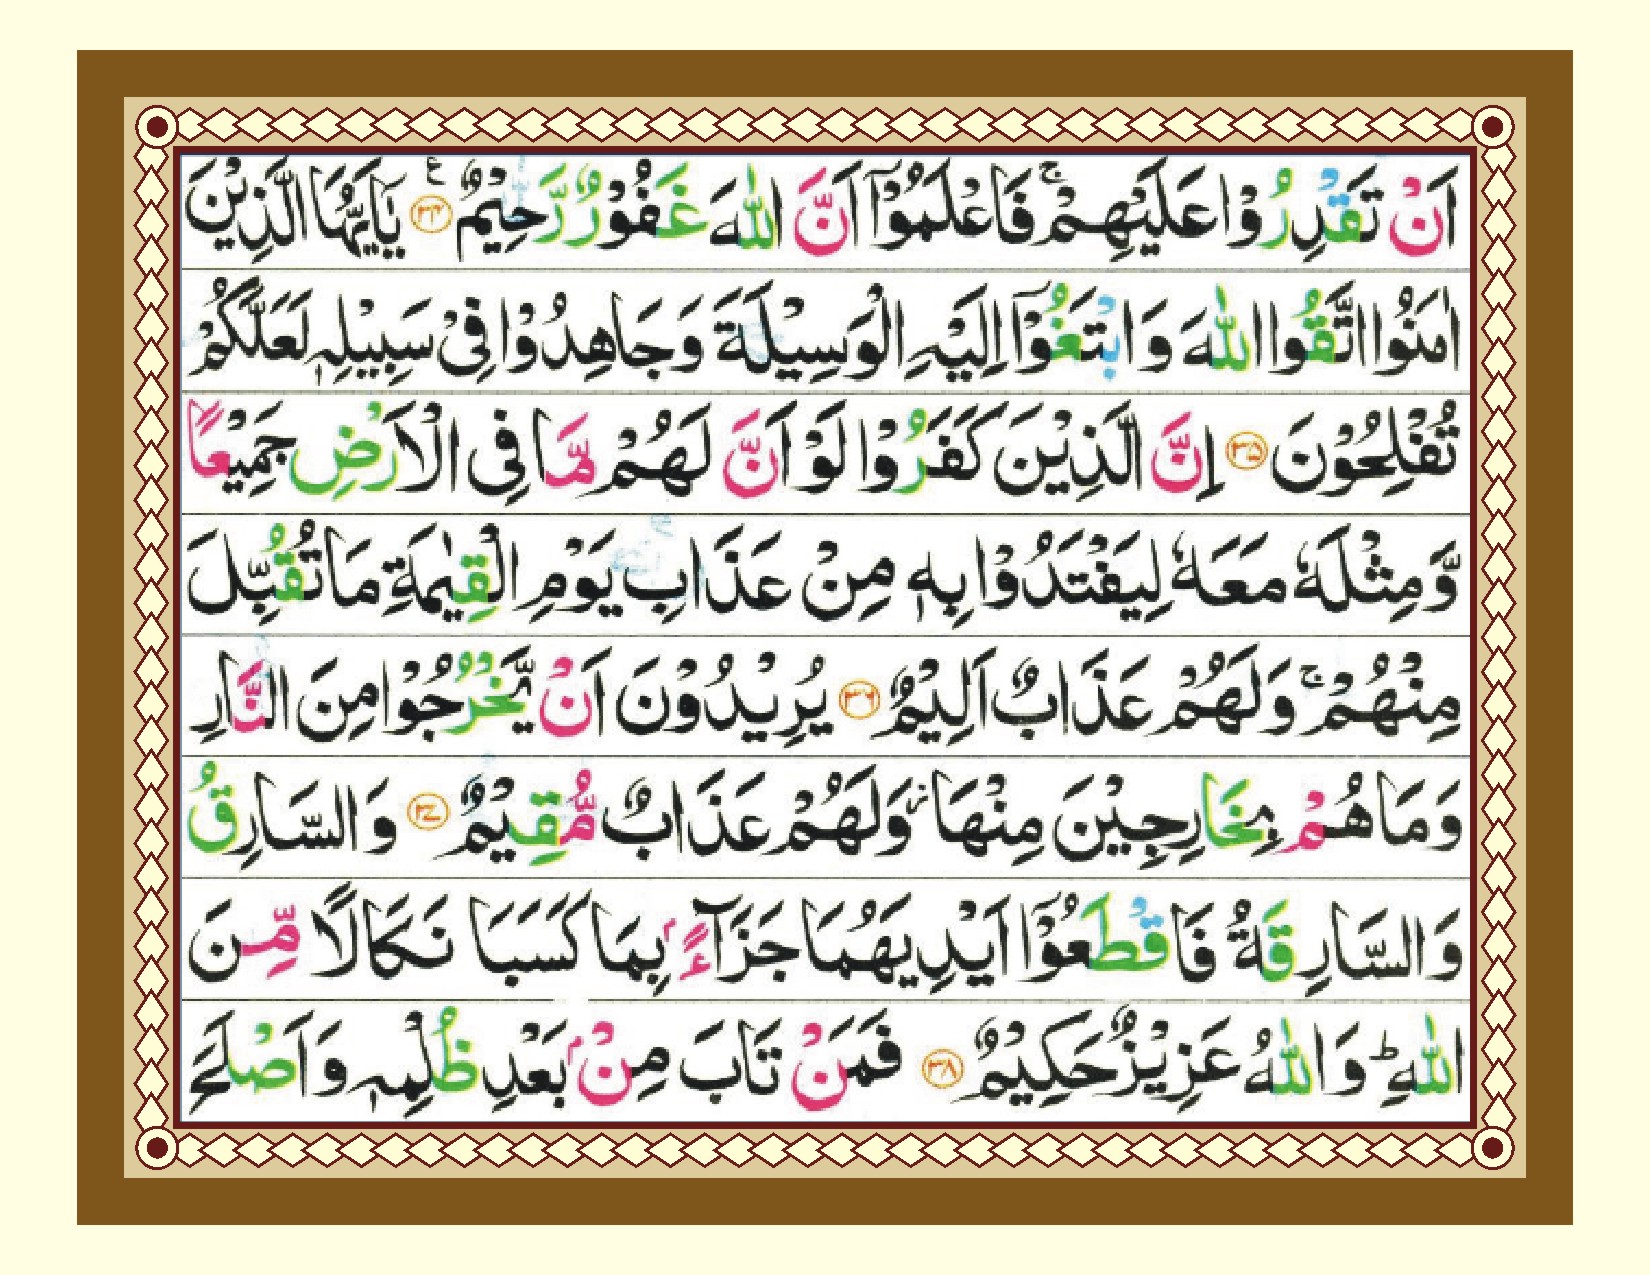 اَنْ تَقْدِرُوْا عَلَيْهِمْ ۚ فَاعْلَمُوْۤا اَنَّ اللّٰهَ غَفُوْرٌ رَّحِيْمٌ ﴿۳۴﴾ ع يٰۤاَيُّهَا الَّذِيْنَ
اٰمَنُوا اتَّقُوا اللّٰهَ وَ ابْتَغُوْۤا اِلَيْهِ الْوَسِيْلَةَ وَ جَاهِدُوْا فِيْ سَبِيْلِهٖ لَعَلَّكُمْ
تُفْلِحُوْنَ ﴿۳۵﴾ اِنَّ الَّذِيْنَ كَفَرُوْا لَوْ اَنَّ لَهُمْ مَّا فِي الْاَرْضِ جَمِيْعًا
وَّ مِثْلَهٗ مَعَهٗ لِيَفْتَدُوْا بِهٖ مِنْ عَذَابِ يَوْمِ الْقِيٰمَةِ مَا تُقُبِّلَ
مِنْهُمْ ۚ وَ لَهُمْ عَذَابٌ اَلِيْمٌ ﴿۳۶﴾ يُرِيْدُوْنَ اَنْ يَّخْرُجُوْا مِنَ النَّارِ
وَ مَا هُمْ بِخَارِجِيْنَ مِنْهَا ؗ وَ لَهُمْ عَذَابٌ مُّقِيْمٌ ﴿۳۷﴾ وَ السَّارِقُ
وَ السَّارِقَةُ فَاقْطَعُوْۤا اَيْدِيَهُمَا جَزَآءًۢ بِمَا كَسَبَا نَكَالًا مِّنَ
اللّٰهِ ؕ وَ اللّٰهُ عَزِيْزٌ حَكِيْمٌ ﴿۳۸﴾ فَمَنْ تَابَ مِنْۢ بَعْدِ ظُلْمِهٖ وَ اَصْلَحَ